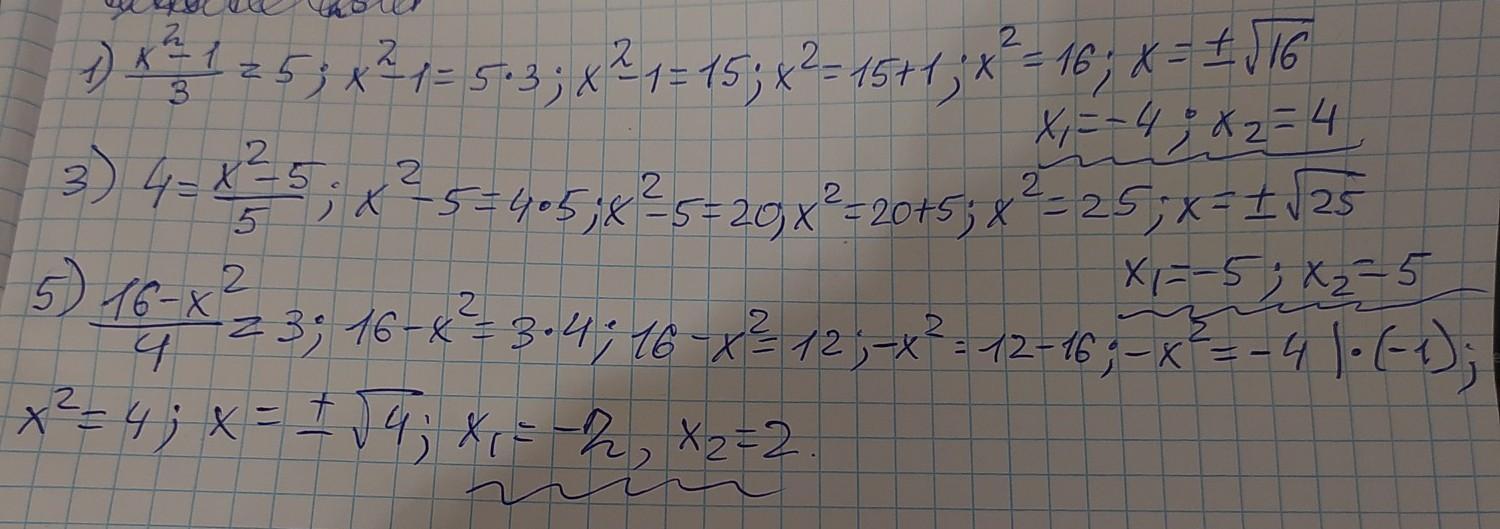 1) (x²-1)/3 = 5; x²-1 = 5·3; x²-1 = 15; x² = 15+1; x² = 16; x = ±√16
x₁ = -4; x₂ = 4
3) 4 = (x²-5)/5; x²-5 = 4·5; x²-5 = 20; x² = 20+5; x² = 25; x = ±√25
x₁ = -5; x₂ = 5
5) (16-x²)/4 = 3; 16-x² = 3·4; 16-x² = 12; -x² = 12-16; -x² = -4 |·(-1);
x² = 4; x = ±√4; x₁ = -2, x₂ = 2.